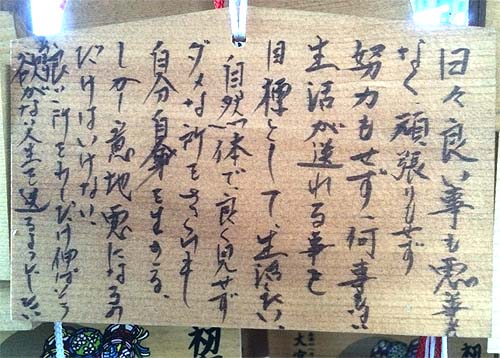 日々良い事も悪い事も
なく頑張りもせず
努力もせず、何事もない
生活が送れる事を
目標として、生活したい。
自然体で良く見せず
ダメな所をさらけ出し
自分自身を生かる、
しかし意地悪になるの
だけはいけない。
良い所をのばし
欲がない人生を送る
初
大